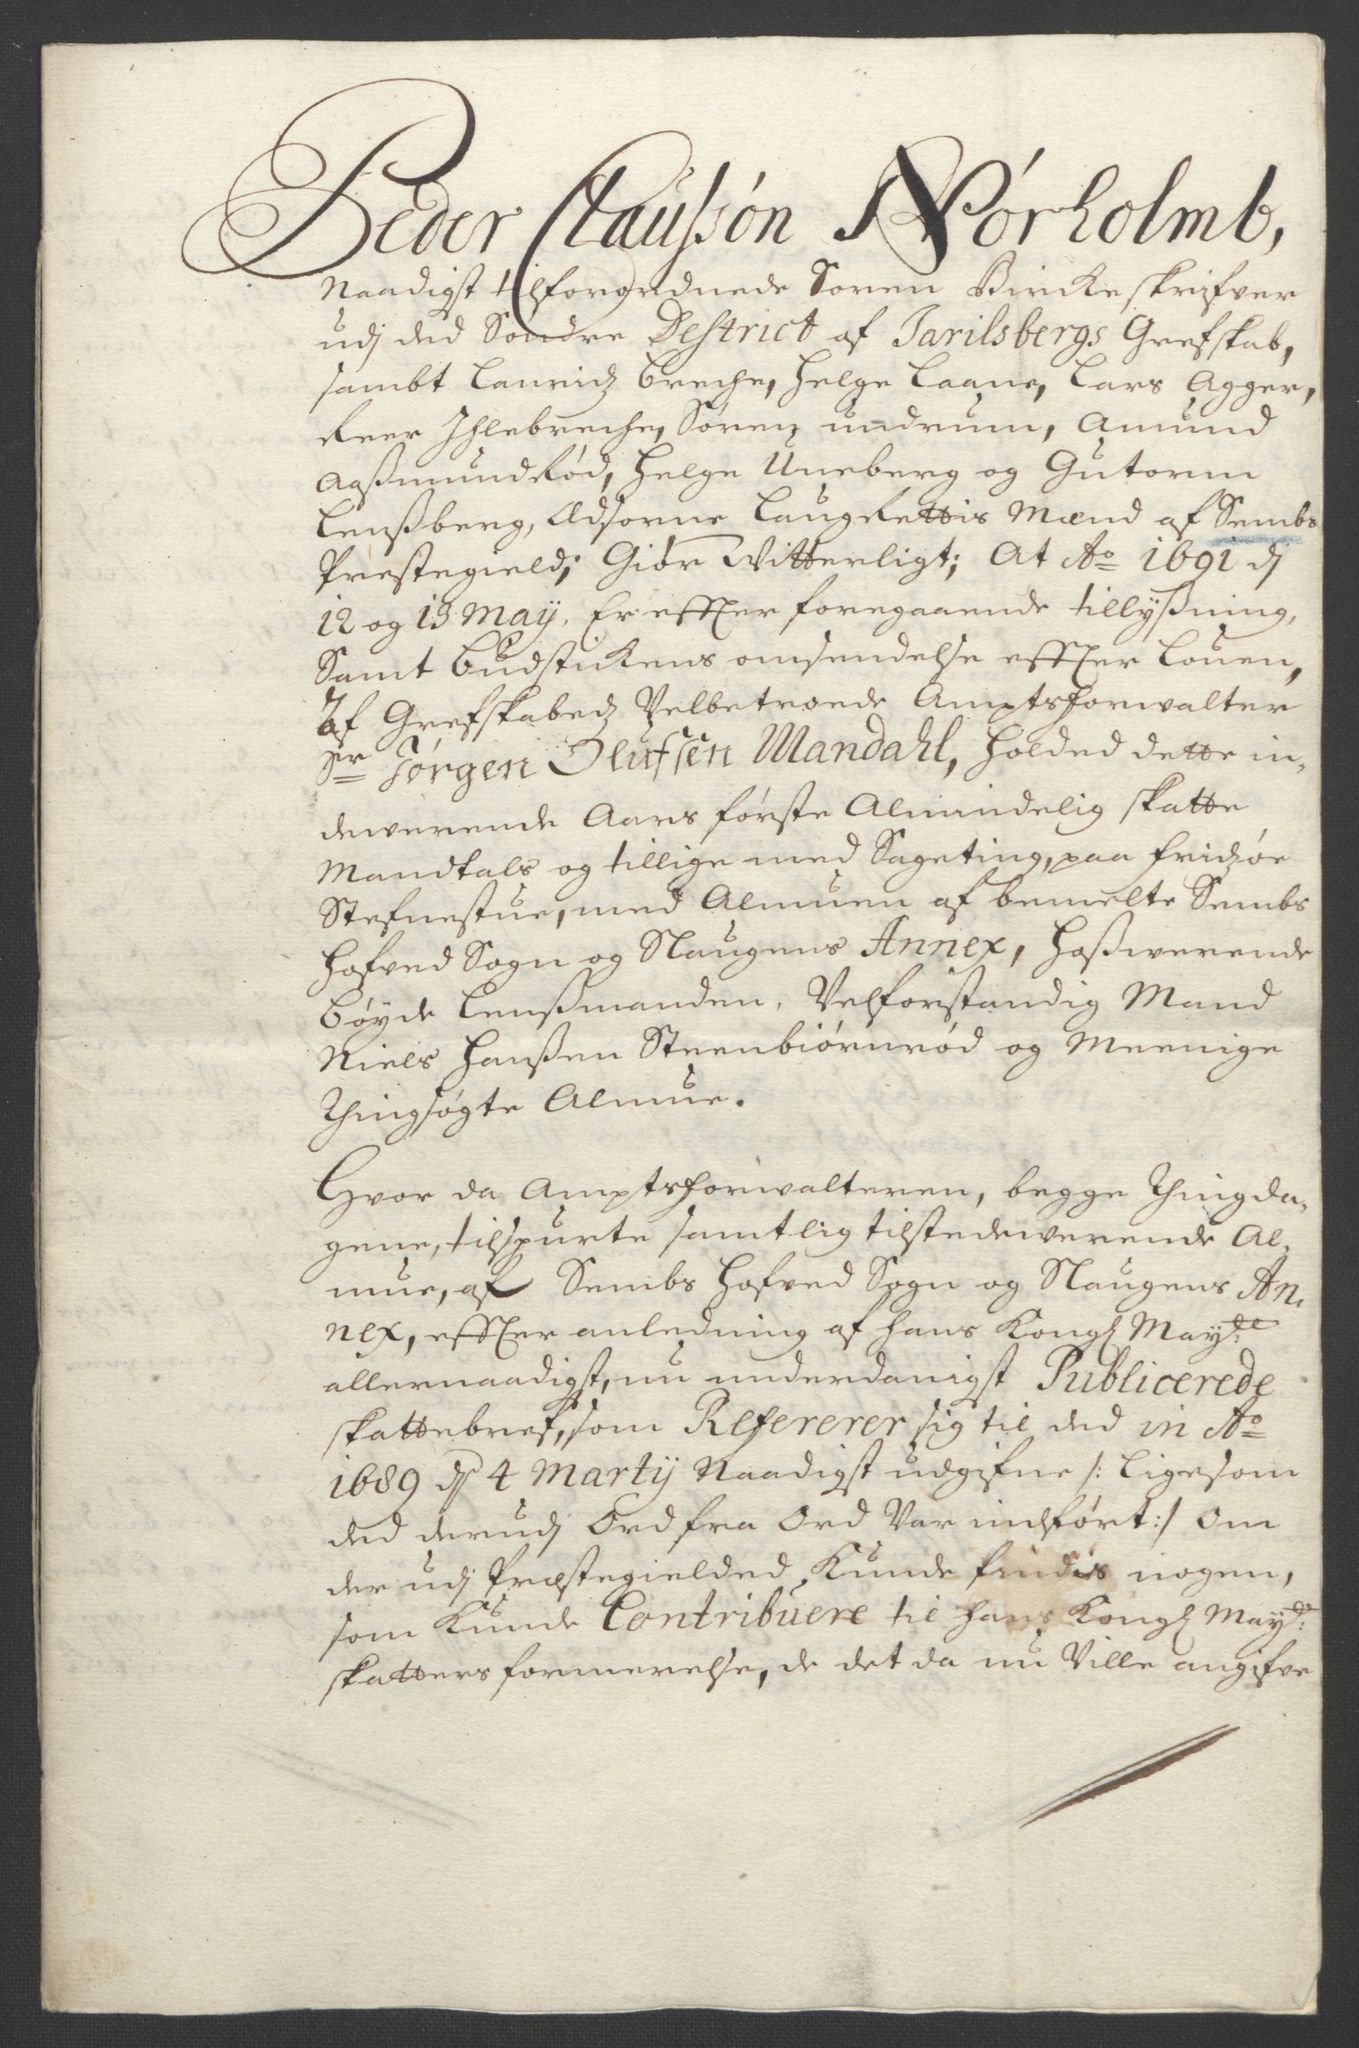 Peder Claussøn Nørholmb,
Naadigst tilforordnede Soren Birckeskrifver
udj ded Søndre District af Jarilsbergs Grefskab,
sambt Lauridz Breche, Helge Laane, Lars Agger,
Peer Ihlebreche, Søren undrum, Amund
Aaßmundrød, Helge Uneberg og Gutorm
Lenßberg, Edsorne Laugrettis Mænd af Sembs
Prestegield; Giør Witterligt; At Ao 1691 dj
12 og 13 May, Er effter foregaaende tillyßning,
Samt budstickens omsendelse effter Louen,
Af Grefskabedz Velbetroede Amptsforwalter
Sr Jørgen Olufsen Mandahl, Holded dette in-
dewerende Aars første Almindelig skatte
Mandtals og tillige med Sageting, paa Fridzøe
Stefnestue, med Almuen af bemelte Sembs
Hofved Sogn og Slaugens Annex, hoßwerende
bøyde Lenßmanden, Velforstandig Mand
Niels Hanßen Steenbiørnrød og Meenige
Thingsøgte Almue.
Hvor da Amptsforwalteren, begge Thingda-
gene, tilspurte samtlig tilstedewerende Al-
mue, af Sembs Hofved Sogn og Slaugens An-
nex, effter anledning af Hans Kongl Mayds
allernaadigst, nu underdanigst Publicerede
skattebref, som Refererer sig til ded in Ao
1689 dj 4 Martij Naadigst udgifne /: ligesom
ded derudj Ord fra Ord Var indført :/ Om
der udj Prestegielded Kunde findis nogen,
som Kunde Contribuere til Hans Kongl Mayds
skatters formerelse, de det da nu Ville angifve